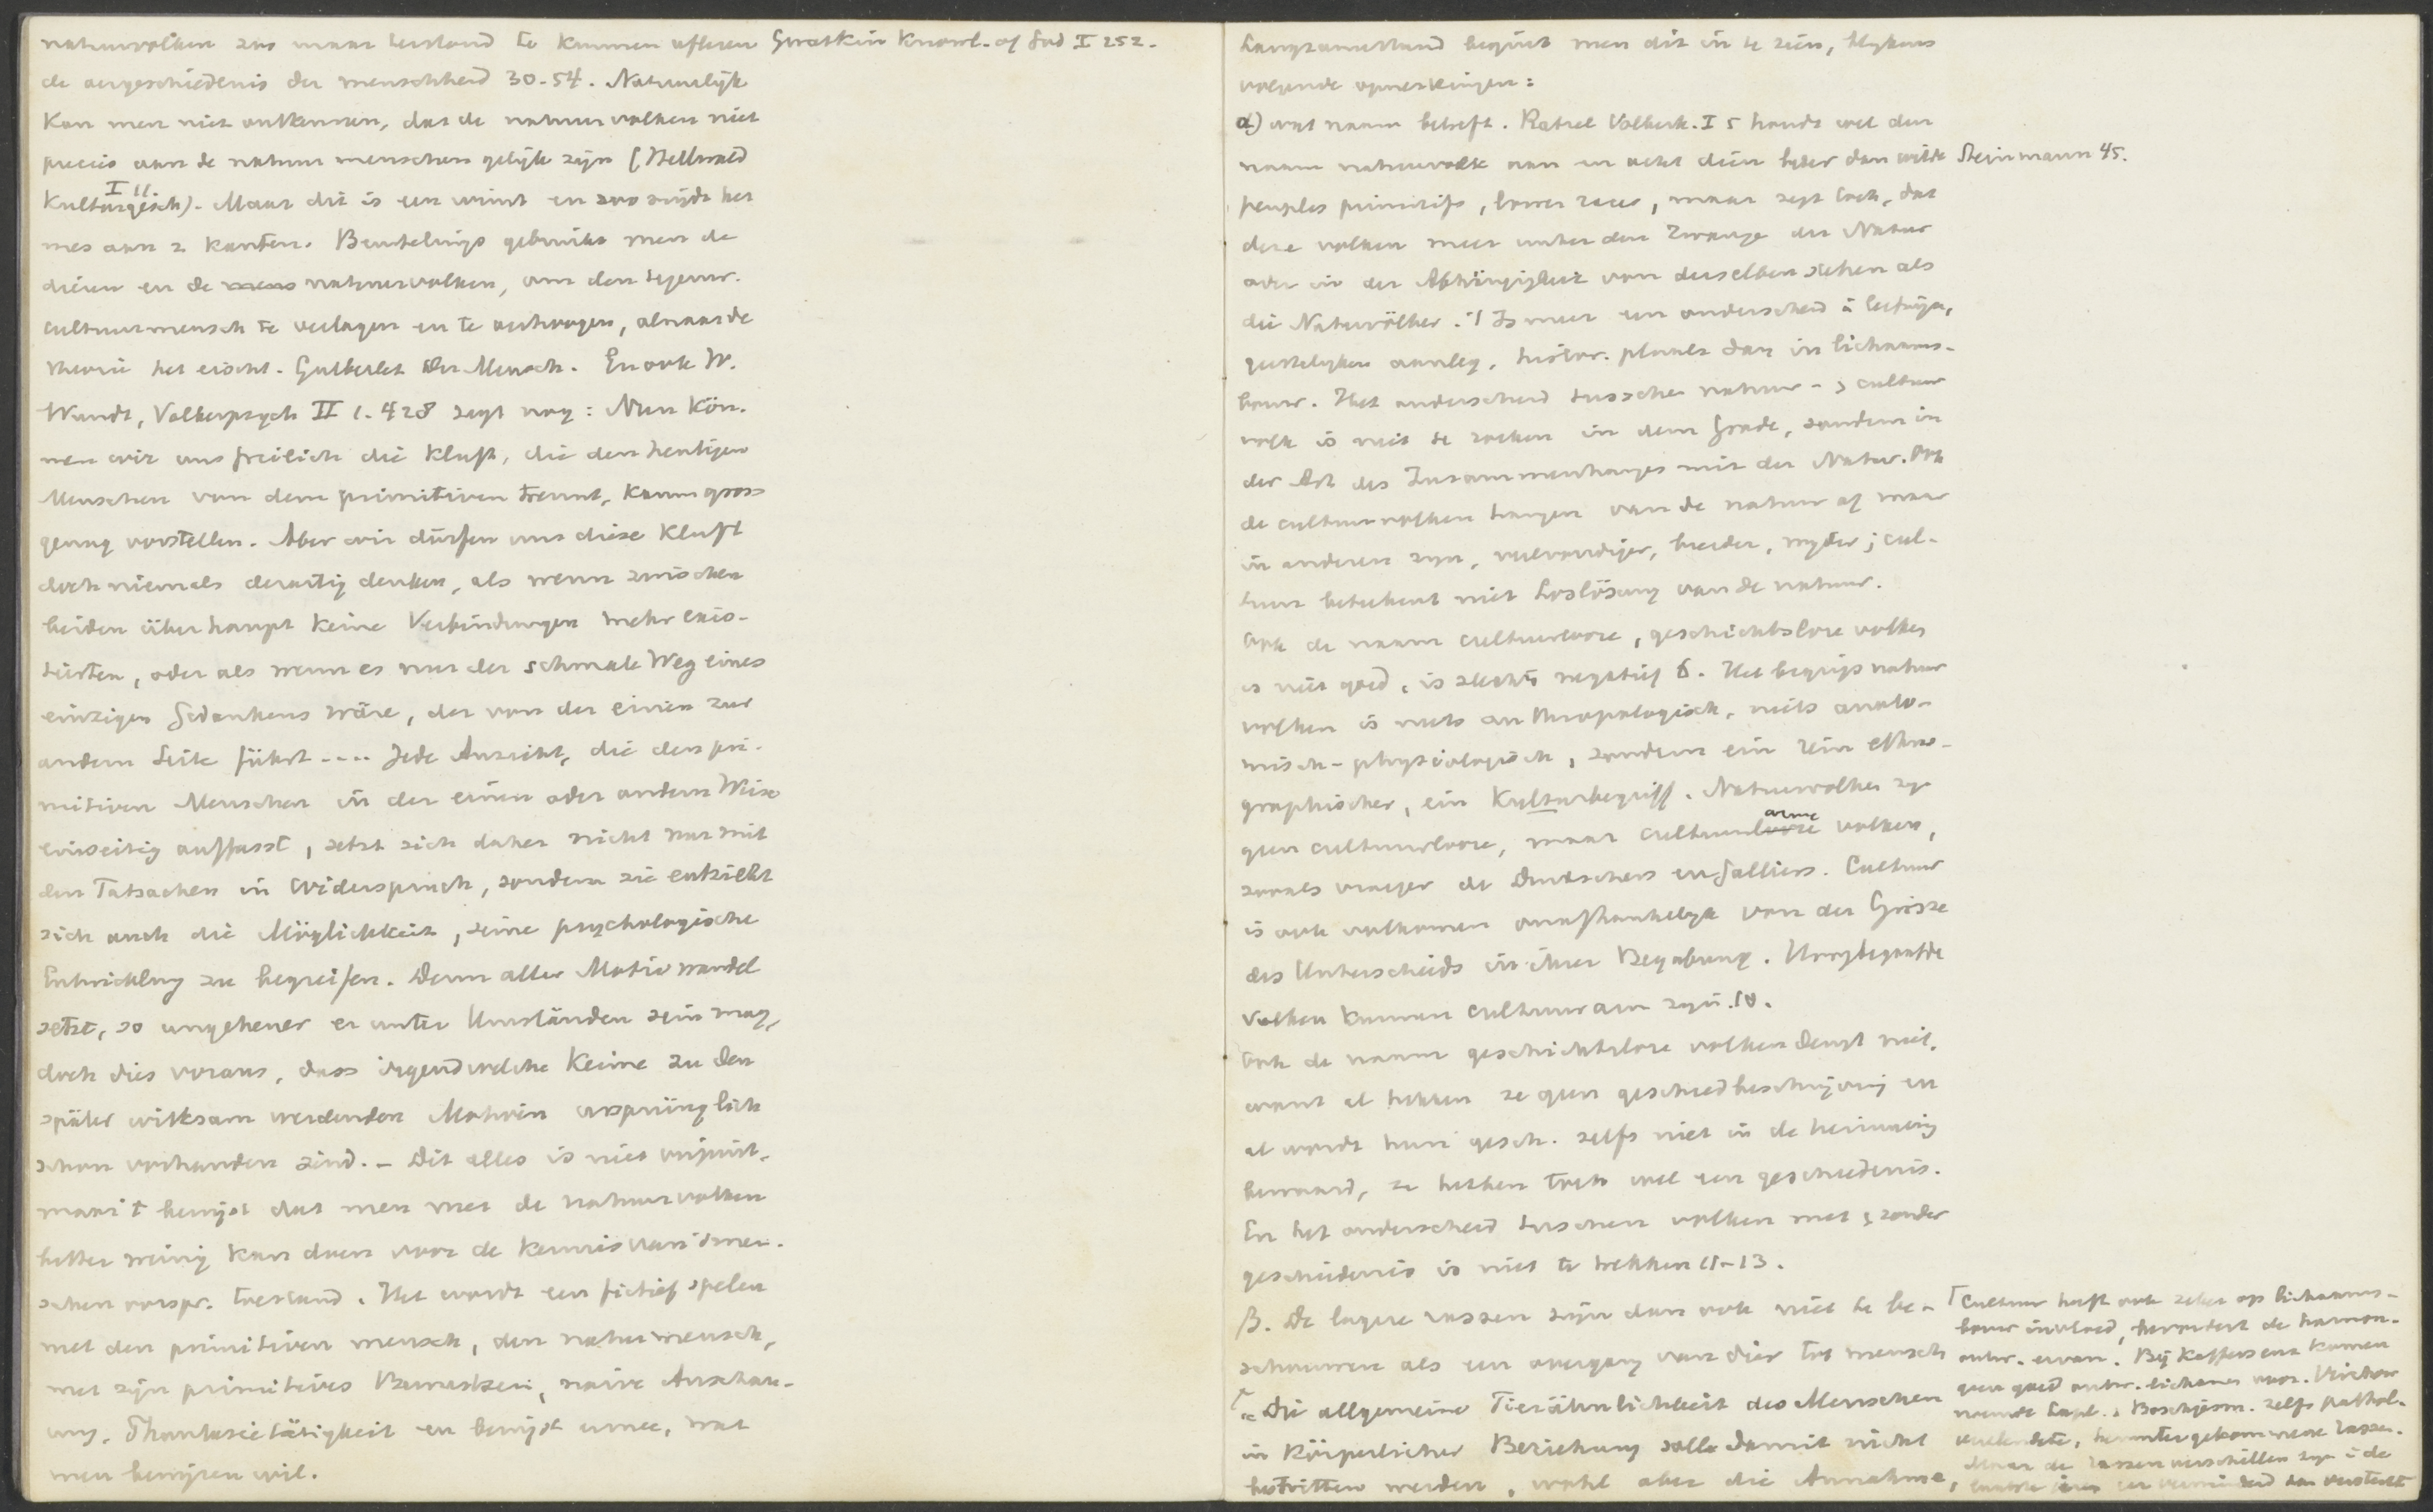 natuurvolken zou maar terstond te kunnen afleren Gwatkin Knowl. of God I 252.
de oergeschiedenis der menschheid 30-54. Natuurlijk
kan men niet ontkennen, dat de natuurvolken niet
precies aan de natuurmenschen gelijk zijn (Hellwald
Kulturgesch) I 11. Maar dit is een winst en zoo snijdt het
mes aan 2 kanten. Beurtelings gebruikt men de
dieren en de natuurvolken, om den tegenw.
cultuurmensch te verlagen en te verhoogen, alnaarde
theorie het eischt. Gutberlet Der Mensch. En ook W.
Wundt, Volkerpsych II 1. 428 zegt nog: Nun kön-
nen wir uns freilich die Kluft, die den heutigen
Menschen von dem primitiven trennt, kaum gross
genug vorstellen. Aber wir dürfen uns diese Kluft
doch niemals derartig denken, als wenn zwischen
beiden überhaupt keine Verbindungen mehr exis-
tierten, oder als wenn es nur der schmale Weg eines
einzigen Gedankens wäre, der von der einen zur
andern Seite führt .... Jede Ansicht, die den pri-
mitiven Menschen in der einen oder andern Weise
einseitig auffasst, setzt sich daher nicht nur mit
den Tatsachen in Widerspruch, sondern sie entzieht
sich auch die Möglichkeit, seine psychologische
Entwicklung zu begreifen. Denn aller Motivwandel
setzt, so ungeheuer er unter Umständen sein mag,
doch dies voraus, dass irgendwelche Keime zu den
später wirksam werdenden Motiven ursprünglich
schon vorhanden sind. - Dit alles is niet onjuist,
maar 't bewijst dat men met de natuurvolken
bitter weinig kan doen voor de kennis van 's men-
schen oorspr. toestand. Het wordt een fictief spelen
met den primitieven mensch, den natuurmensch,
met zijn primitives Bewustsein, naive Anschau-
ung, Phantasietätigkeit en bewijst ermee, wat
men bewijzen wil.
Langzamerhand begint men dit in te zien, blykens
volgende opmerkingen:
α) wat naam betreft. Ratzel Volkerk. I 5 houdt wel den
naam natuurvolk aan en acht dien beter dan wilde Steinmann 45.
peuples primitifs, lower races, maar zegt toch, dat
deze volken meer unter dem Zwange der Natur
oder in der Abhängigkeit von derselben stehen als
die Naturvölker. Is meer een onderscheid in leefwijze,
geestelyken aanleg, histor. plaats dan in lichaams-
bouw. Het onderscheid tusschen natuur- & cultuur
volk is niet te zoeken in dem Grade, sondern in
der Art des Zusammenhanges mit der Natur. Ook
de cultuurvolken hangen van de natuur af maar
in anderen zyn, veelvoudiger, breeder, wyder; cul-
tuur beteekent niet Loslösung van de natuur.
Ook de naam cultuurlooze, geschichtslose volken
is niet goed, is slechts negatief 6. Het begrip natuur
volken is niets anthropologisch, niets anato-
misch-physiologisch, sondern ein rein ethno-
graphischer, ein Kulturbegriff. Natuurvolken zyn
geen cultuurlooze, maar cultuurarme volken,
zooals vroeger de Duitschers en Galliërs. Cultuur
is ook volkomen onafhankelyk von der Grösze
des Unterschieds in ihrer Begabung. Hoogbegaafde
volken kunnen cultuurarm zyn. 10.
Ook de naam geschichtslose volken deugt niet,
want al hebben ze geen geschiedbeschrijving en
al wordt hun gesch. zelfs niet in de herinnering
bewaard, ze hebben toch wel een geschiedenis.
En het onderscheid tusschen volken met & zonder
geschiedenis is niet te trekken 11-13.
β. De lagere rassen zijn dan ook niet te be-
schouwen als een overgang van dier tot mensch
"Die allgemeine Tierähnlichkeit des Menschen
in körperlicher Beziehung soll damit nicht
bestritten werden, wohl aber die Annahme,
Cultuur heeft ook zeker op lichaams-
bouw invloed, bevordert de harmon.
ontw. ervan. Bij Kaffers enz komen
geen goed ontw. lichamen voor. Virchow
noemde Lapl. & Boschjesm. zelfs pathol.
verlendete, heruntergekommene Rassen.
Maar de rassenverschillen zyn in de